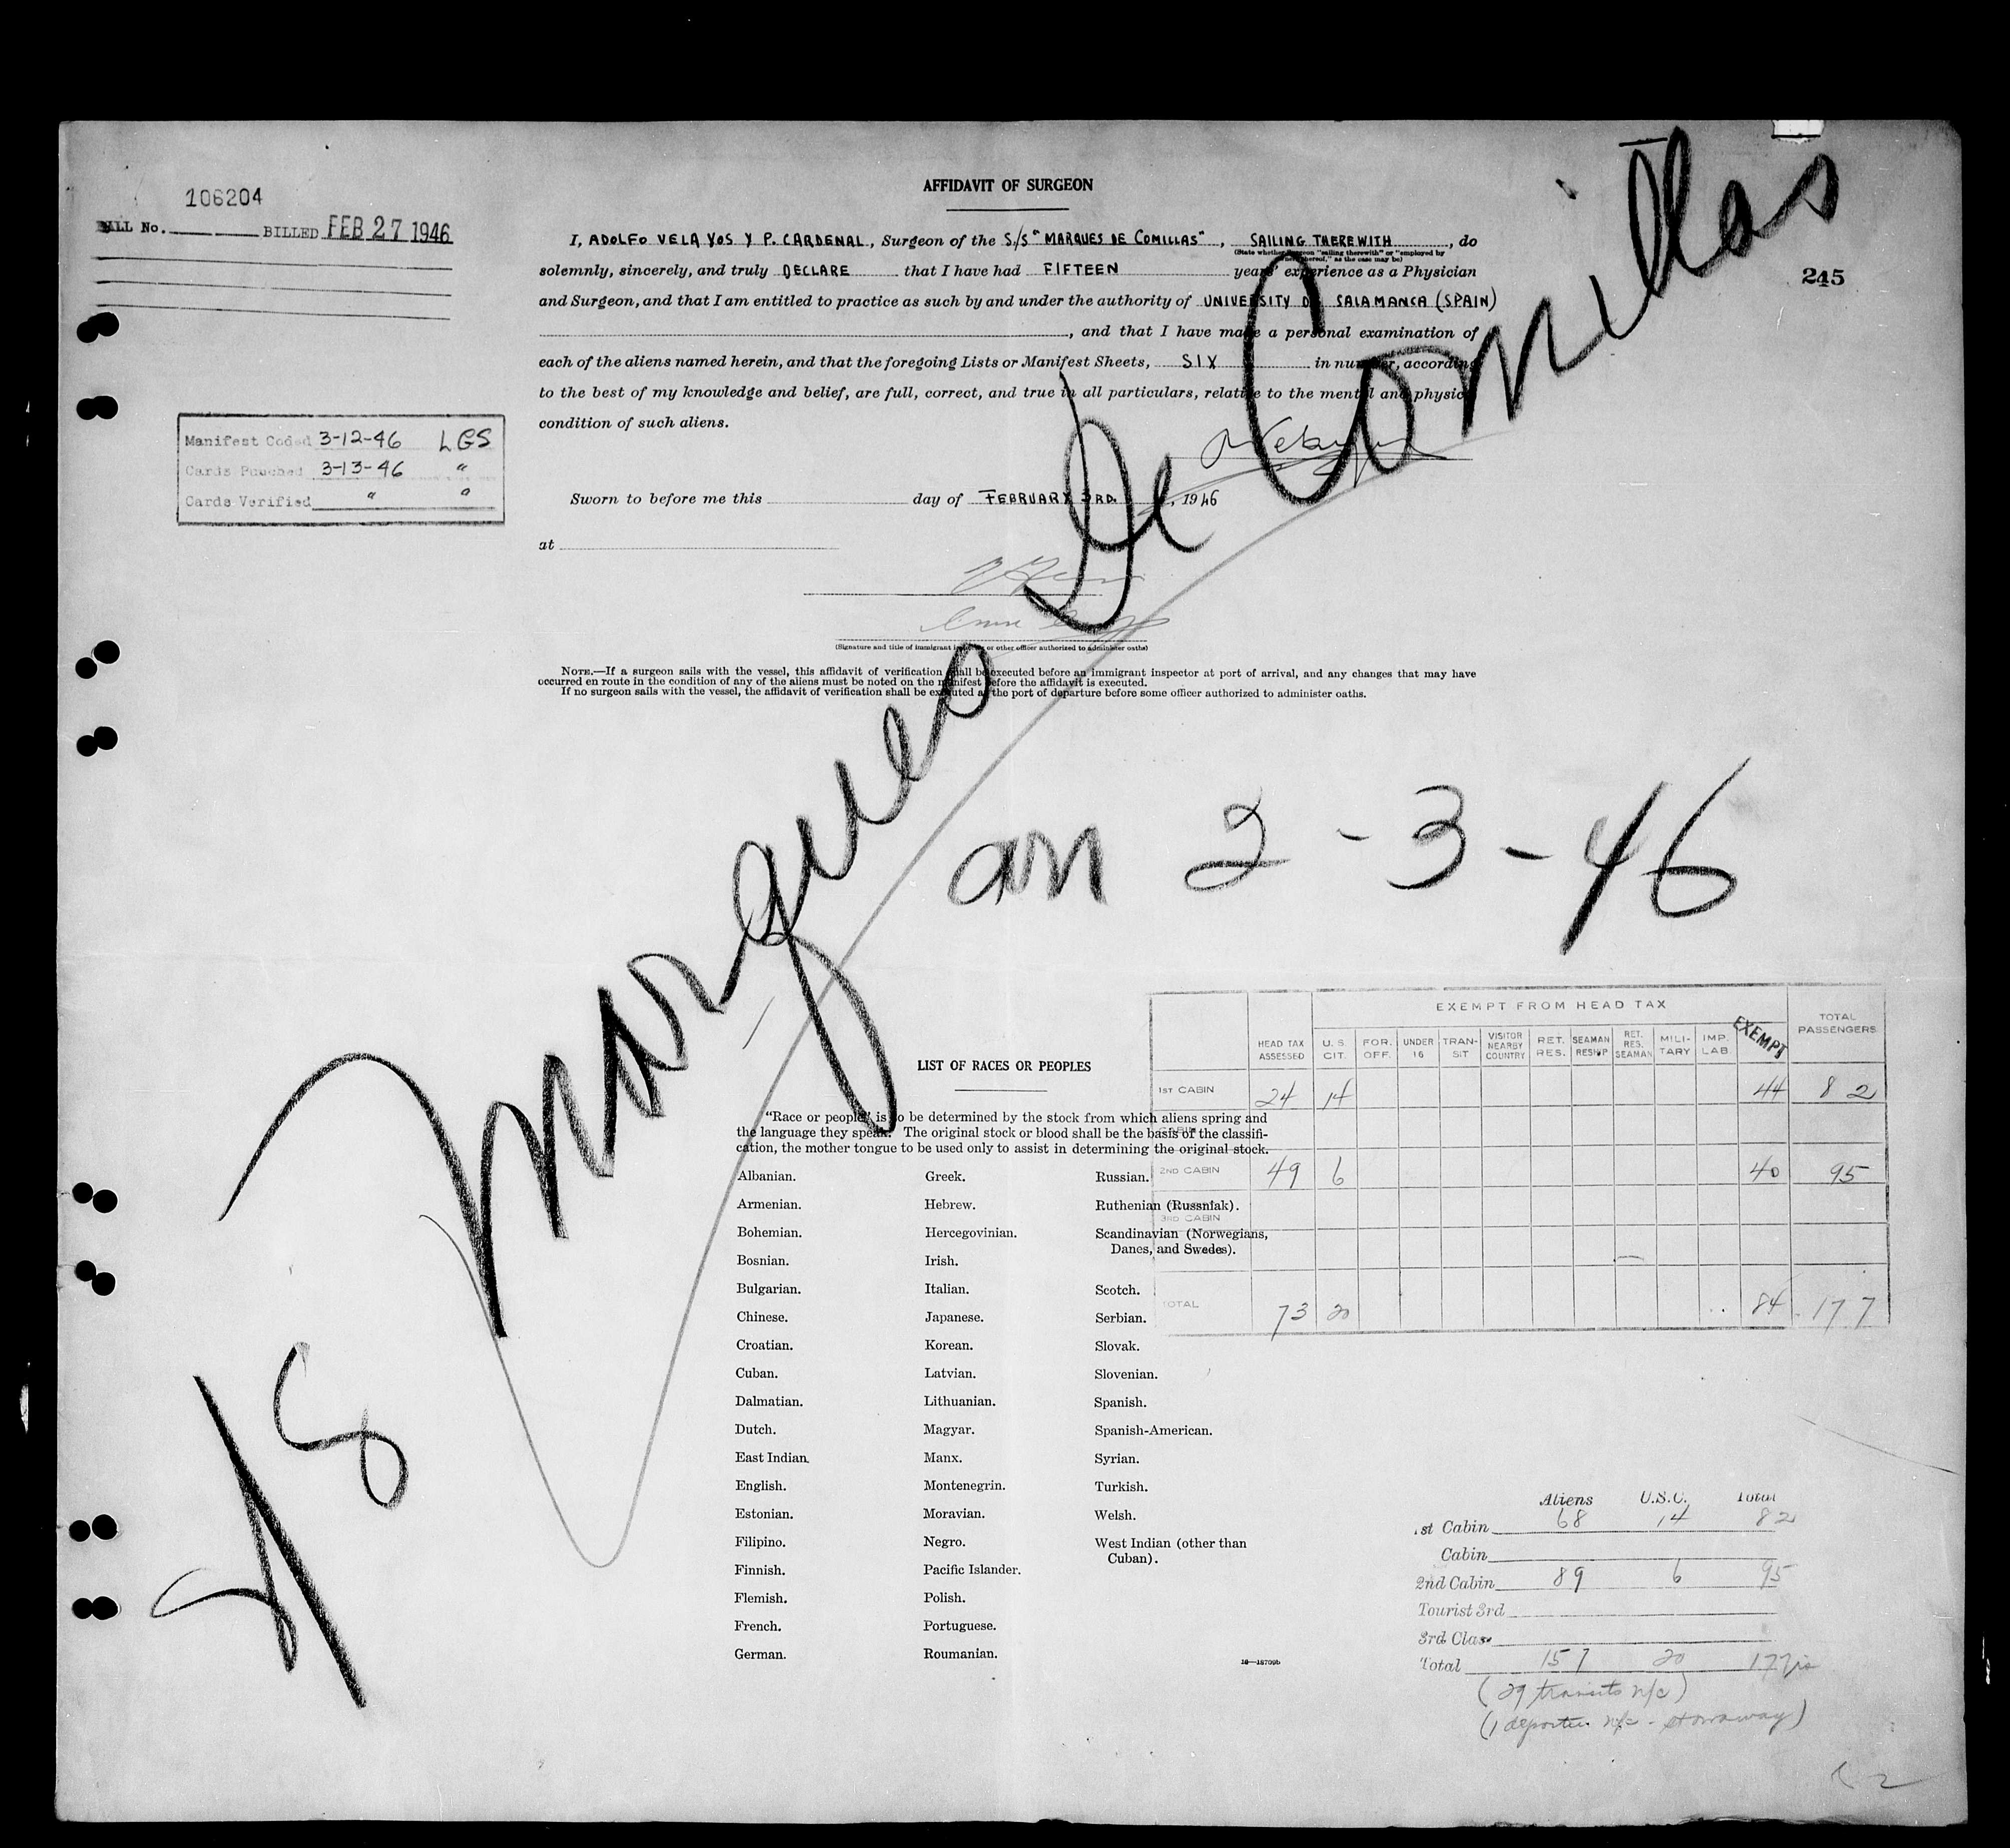 106204
BILL No. BILLED FEB 27 1946
AFFIDAVIT OF SURGEON
I, ADOLFO VELA YOS Y P. CARDENAL, Surgeon of the S/S "MARQUES DE COMILLAS", SAILING THEREWITH, do
(State whether Surgeon "sailing therewith" or "employed by
owners thereof," as the case may be)
solemnly, sincerely, and truly DECLARE that I have had FIFTEEN years' experience as a Physician
and Surgeon, and that I am entitled to practice as such by and under the authority of UNIVERSITY DE SALAMANCA (SPAIN)
, and that I have made a personal examination of
each of the aliens named herein, and that the foregoing Lists or Manifest Sheets, SIX in number, according
to the best of my knowledge and belief, are full, correct, and true in all particulars, relative to the mental and physical
condition of such aliens.
245
Manifest Coded 3-12-46 LGS
Cards Punched 3-13-46 "
Cards Verified " "
Sworn to before me this day of FEBRUARY 3RD. , 1946
at
(Signature and title of immigrant inspector or other officer authorized to administer oaths)
NOTE.—If a surgeon sails with the vessel, this affidavit of verification shall be executed before an immigrant inspector at port of arrival, and any changes that may have
occurred en route in the condition of any of the aliens must be noted on the manifest before the affidavit is executed.
If no surgeon sails with the vessel, the affidavit of verification shall be executed at the port of departure before some officer authorized to administer oaths.
S/S Marques De Comillas
arr 2-3-46
EXEMPT FROM HEAD TAX
HEAD TAX ASSESSED U. S. CIT. FOR. OFF. UNDER 16 TRAN- SIT VISITOR NEARBY COUNTRY RET. RES. SEAMAN RESHIP RET. RES. SEAMAN MILI- TARY IMP. LAB. EXEMPT TOTAL PASSENGERS
1ST CABIN 24 14 44 82
CABIN
2ND CABIN 49 6 40 95
3RD CABIN
TOTAL 73 20 84 177
LIST OF RACES OR PEOPLES
"Race or people" is to be determined by the stock from which aliens spring and
the language they speak. The original stock or blood shall be the basis of the classifi-
cation, the mother tongue to be used only to assist in determining the original stock.
Albanian.
Armenian.
Bohemian.
Bosnian.
Bulgarian.
Chinese.
Croatian.
Cuban.
Dalmatian.
Dutch.
East Indian.
English.
Estonian.
Filipino.
Finnish.
Flemish.
French.
German.
Greek.
Hebrew.
Hercegovinian.
Irish.
Italian.
Japanese.
Korean.
Latvian.
Lithuanian.
Magyar.
Manx.
Montenegrin.
Moravian.
Negro.
Pacific Islander.
Polish.
Portuguese.
Roumanian.
Russian.
Ruthenian (Russniak).
Scandinavian (Norwegians,
Danes, and Swedes).
Scotch.
Serbian.
Slovak.
Slovenian.
Spanish.
Spanish-American.
Syrian.
Turkish.
Welsh.
West Indian (other than
Cuban).
16—18709b
Aliens U.S.C. Total
1st Cabin 68 14 82
Cabin
2nd Cabin 89 6 95
Tourist 3rd
3rd Class
Total 157 20 177
(29 transits n/c)
(1 deportee n/c - stowaway)